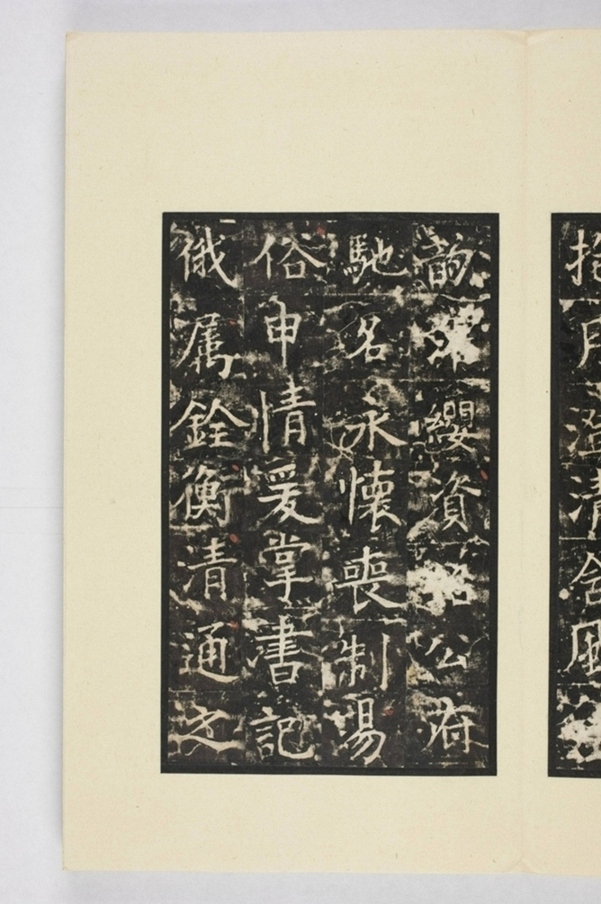 抱月澄清含風
韵深纓資於公府
馳名永懷喪制易
俗申情爰掌書記
俄属銓衡清通之